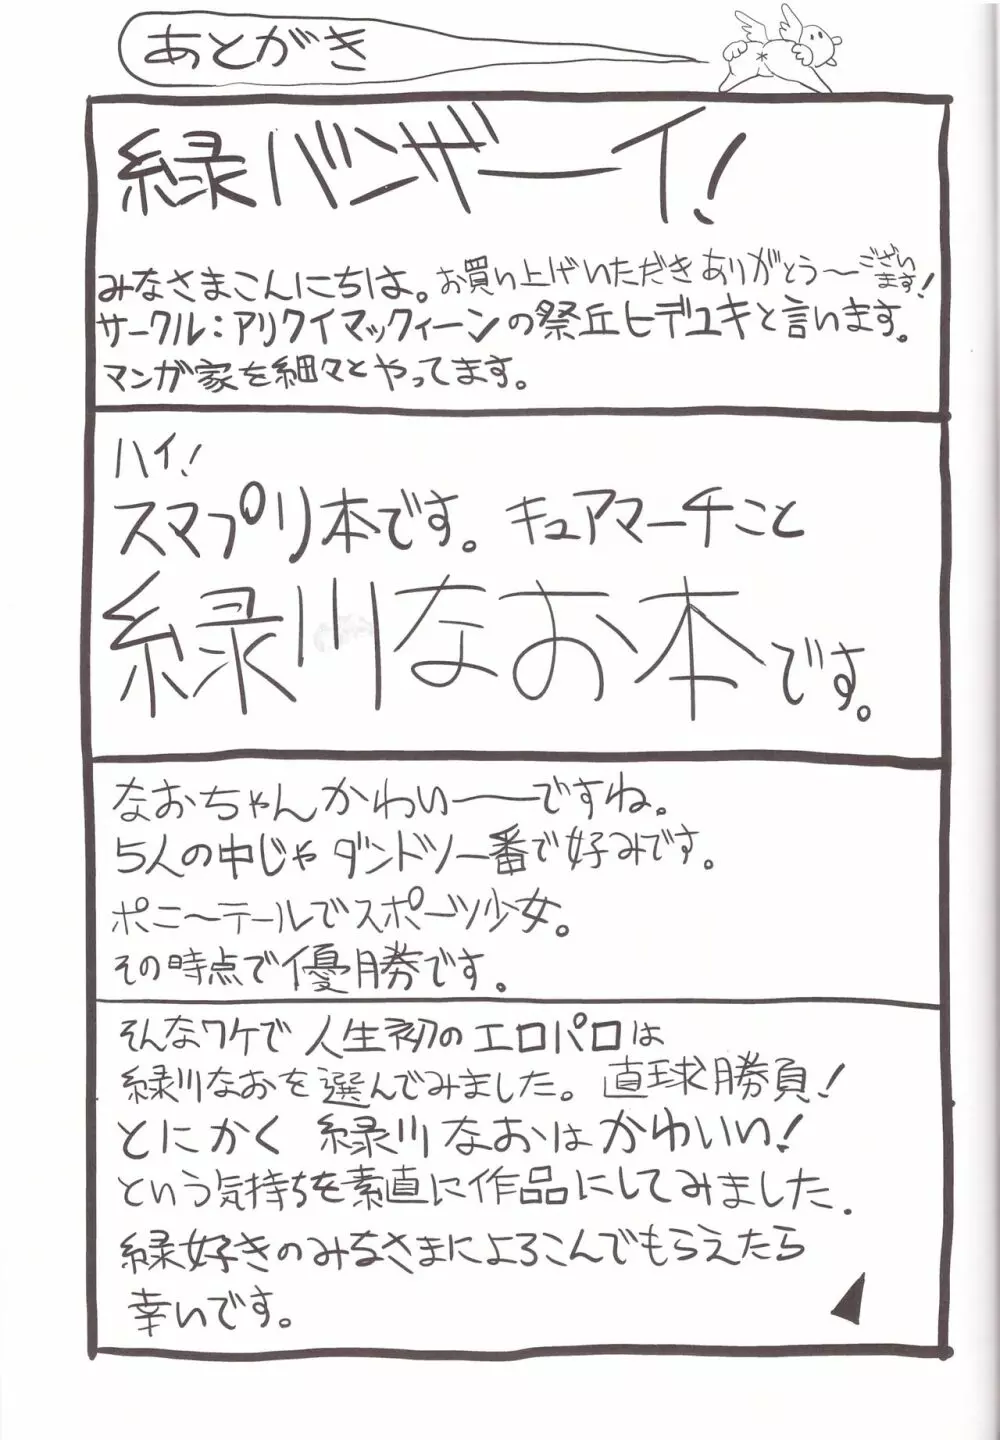 あとがき
緑バンザーイ!
みなさまこんにちは。お買い上げいただきありがとう〜ございます!
サークル:アリクイマックィーンの祭丘ヒデユキと言います。
マンガ家を細々とやってます。
ハイ!
スマプリ本です。キュアマーチこと
緑川なお本です。
なおちゃんかわいーーですね。
5人の中じゃダンドツ一番で好みです。
ポニ〜テールでスポーツ少女。
その時点で優勝です。
そんなワケで人生初のエロパロは
緑川なおを選んでみました。直球勝負!
とにかく 緑川なおはかわいい!
という気持ちを素直に作品にしてみました.
緑好きのみなさまによろこんでもらえたら
幸いです。